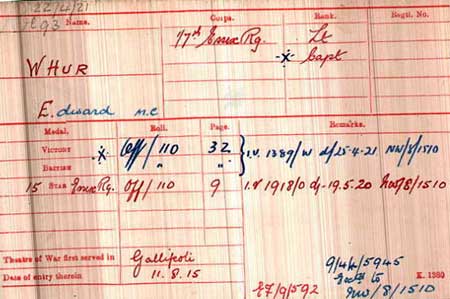 22/4/21
Name. Corps. Rank. Regtl. No.
WHUR 7/7th Essex Rg. Lt
-x- Capt
Edward M.C
Medal. Roll. Page. Remarks.
VICTORY -x- Off/110 32 I.V. 1389/W d/25-4-21 NW/8/1510
BRITISH " " "
15 STAR Essex Rg. Off/110 9 I.V 1918/0 d/- 19.5.20 NW/8/1510
Theatre of War first served in Gallipoli
Date of entry therein 11.8.15
9/44/5945
K. 1380
E7/9/592 NW/8/1510